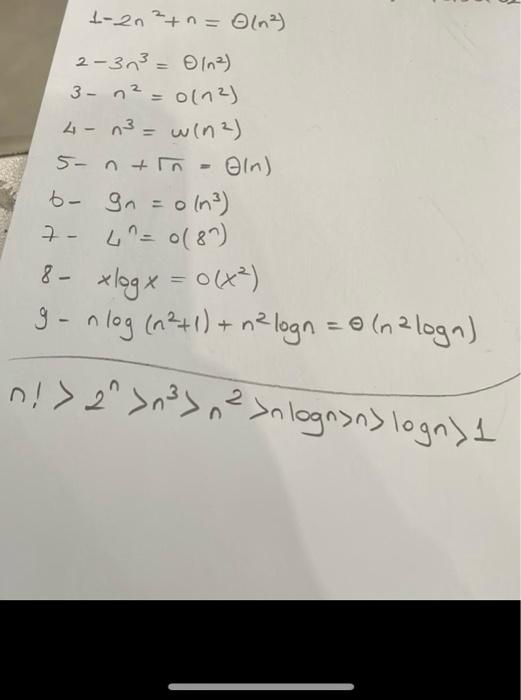 1-2n²+n = Θ(n²)
2-3n³ = Θ(n²)
3- n² = o(n²)
4- n³ = w(n²)
5- n + √n = Θ(n)
6- 9n = o(n³)
7- 4ⁿ = o(8ⁿ)
8- xlogx = o(x²)
9- nlog(n²+1) + n²logn = Θ(n²logn)
n! > 2ⁿ > n³ > n² > nlogn > n > logn > 1